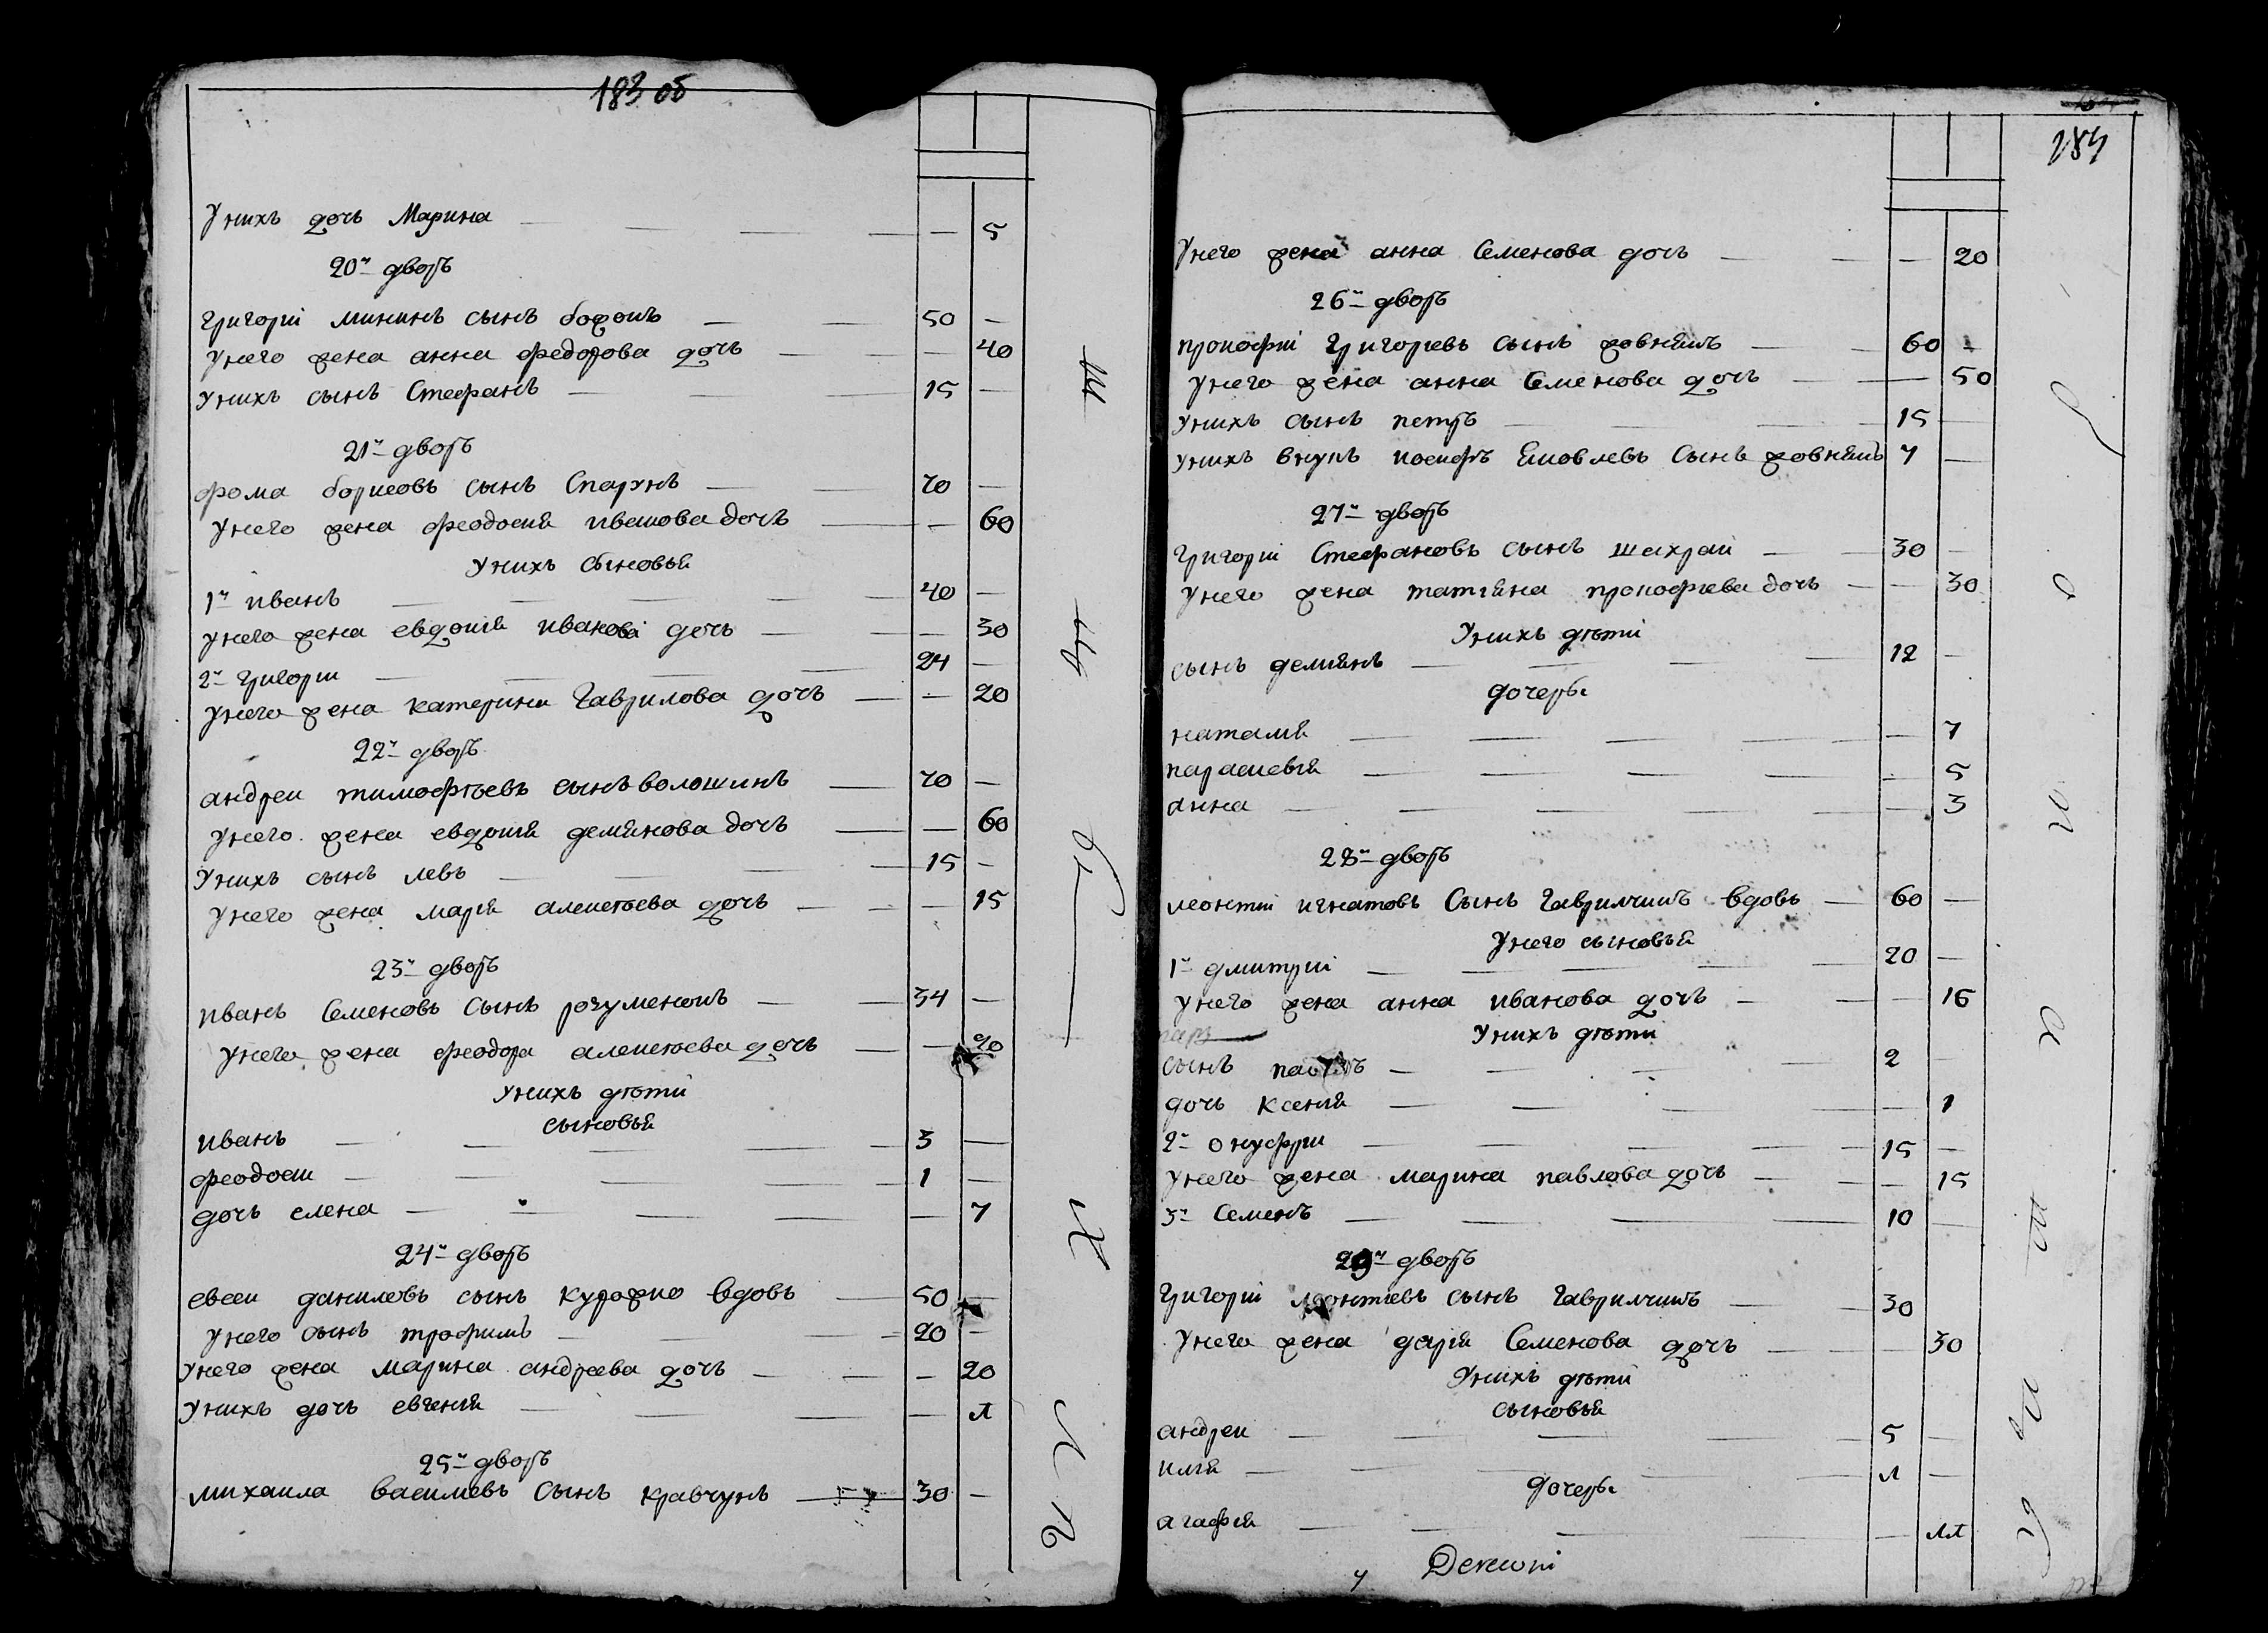 183 об
У нихъ дочь Марина — 5
20й дворъ
Григорій мининъ сынъ — 50 —
У него жена анна федорова дочь — 40
У нихъ сынъ Стефанъ — 15 —
21й дворъ
фома борисовъ сынъ Спарунъ — 70 —
У него жена феодосія ивашова дочь — 60
У нихъ сыновья
1й иванъ — 40 —
У него жена евдокія иванова дочь — 30
2й григори — 24 —
У него жена катерина Гаврилова дочь — 20
22й дворъ
андреи тимофѣевъ сынъ волошинъ — 70 —
У него жена евдокія демянова дочь — 60
У нихъ сынъ левъ — 15 —
У него жена марія алексѣева дочь — 15
23й дворъ
иванъ Семеновъ Сынъ розуменко — 34 —
У него жена феодора алексѣева дочь —
У нихъ дѣти
сыновья
иванъ — 3 —
феодоси — 1 —
дочь елена — 7
24й дворъ
евсеи даниловъ сынъ вдовъ — 50
У него сынъ трофимъ — 20 —
У него жена марина андреева дочь — 20
У нихъ дочь евгенія — л
25й дворъ
михаила василіевъ Сынъ кравчунъ — 30 —
184
У него жена анна Семенова дочь — 20
26й дворъ
прокофій Григоріевъ сынъ жовнякъ — 60 —
У него жена анна Семенова дочь — 50
У нихъ сынъ петръ — 15 —
У нихъ внукъ иосифъ Яковлевъ Сынъ жовнякъ 7 —
27й дворъ
Григорій Стефановъ сынъ шахрай — 30 —
У него жена татіяна прокофіева дочь — 30
У нихъ дѣти
сынъ демянъ — 12 —
дочеры
наталія — 7
параскевія — 5
анна — 3
28й дворъ
леонтій игнатовъ Сынъ Гаврилчикъ вдовъ — 60 —
У него сыновья
1й дмитрій — 20 —
У него жена анна иванова дочь — 16
У нихъ дѣти
сынъ — 2 —
дочь Ксенія — 1
2й онуфри — 15 —
У него жена марина павлова дочь — 15
3й Семенъ — 10 —
29й дворъ
Григорій леонтіевъ сынъ Гаврилчикъ — 30
У него жена дарія Семенова дочь — 30
У нихъ дѣти
сыновья
андреи — 5 —
илія — л —
дочеры
агафія —